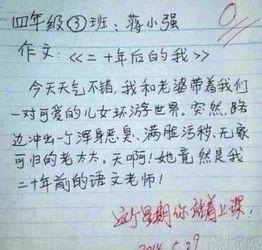 四年级③班：蒋小强
0
作文：《二十年后的我》
今天天气不错，我和老婆带着我们
一对可爱的儿女环游世界。突然，路
边冲出一个浑身恶臭、满脸污秽、无家
可归的老太太，天啊！她竟然是我
二十年前的语文老师！
这个星期你站着上课！
2014.5.29